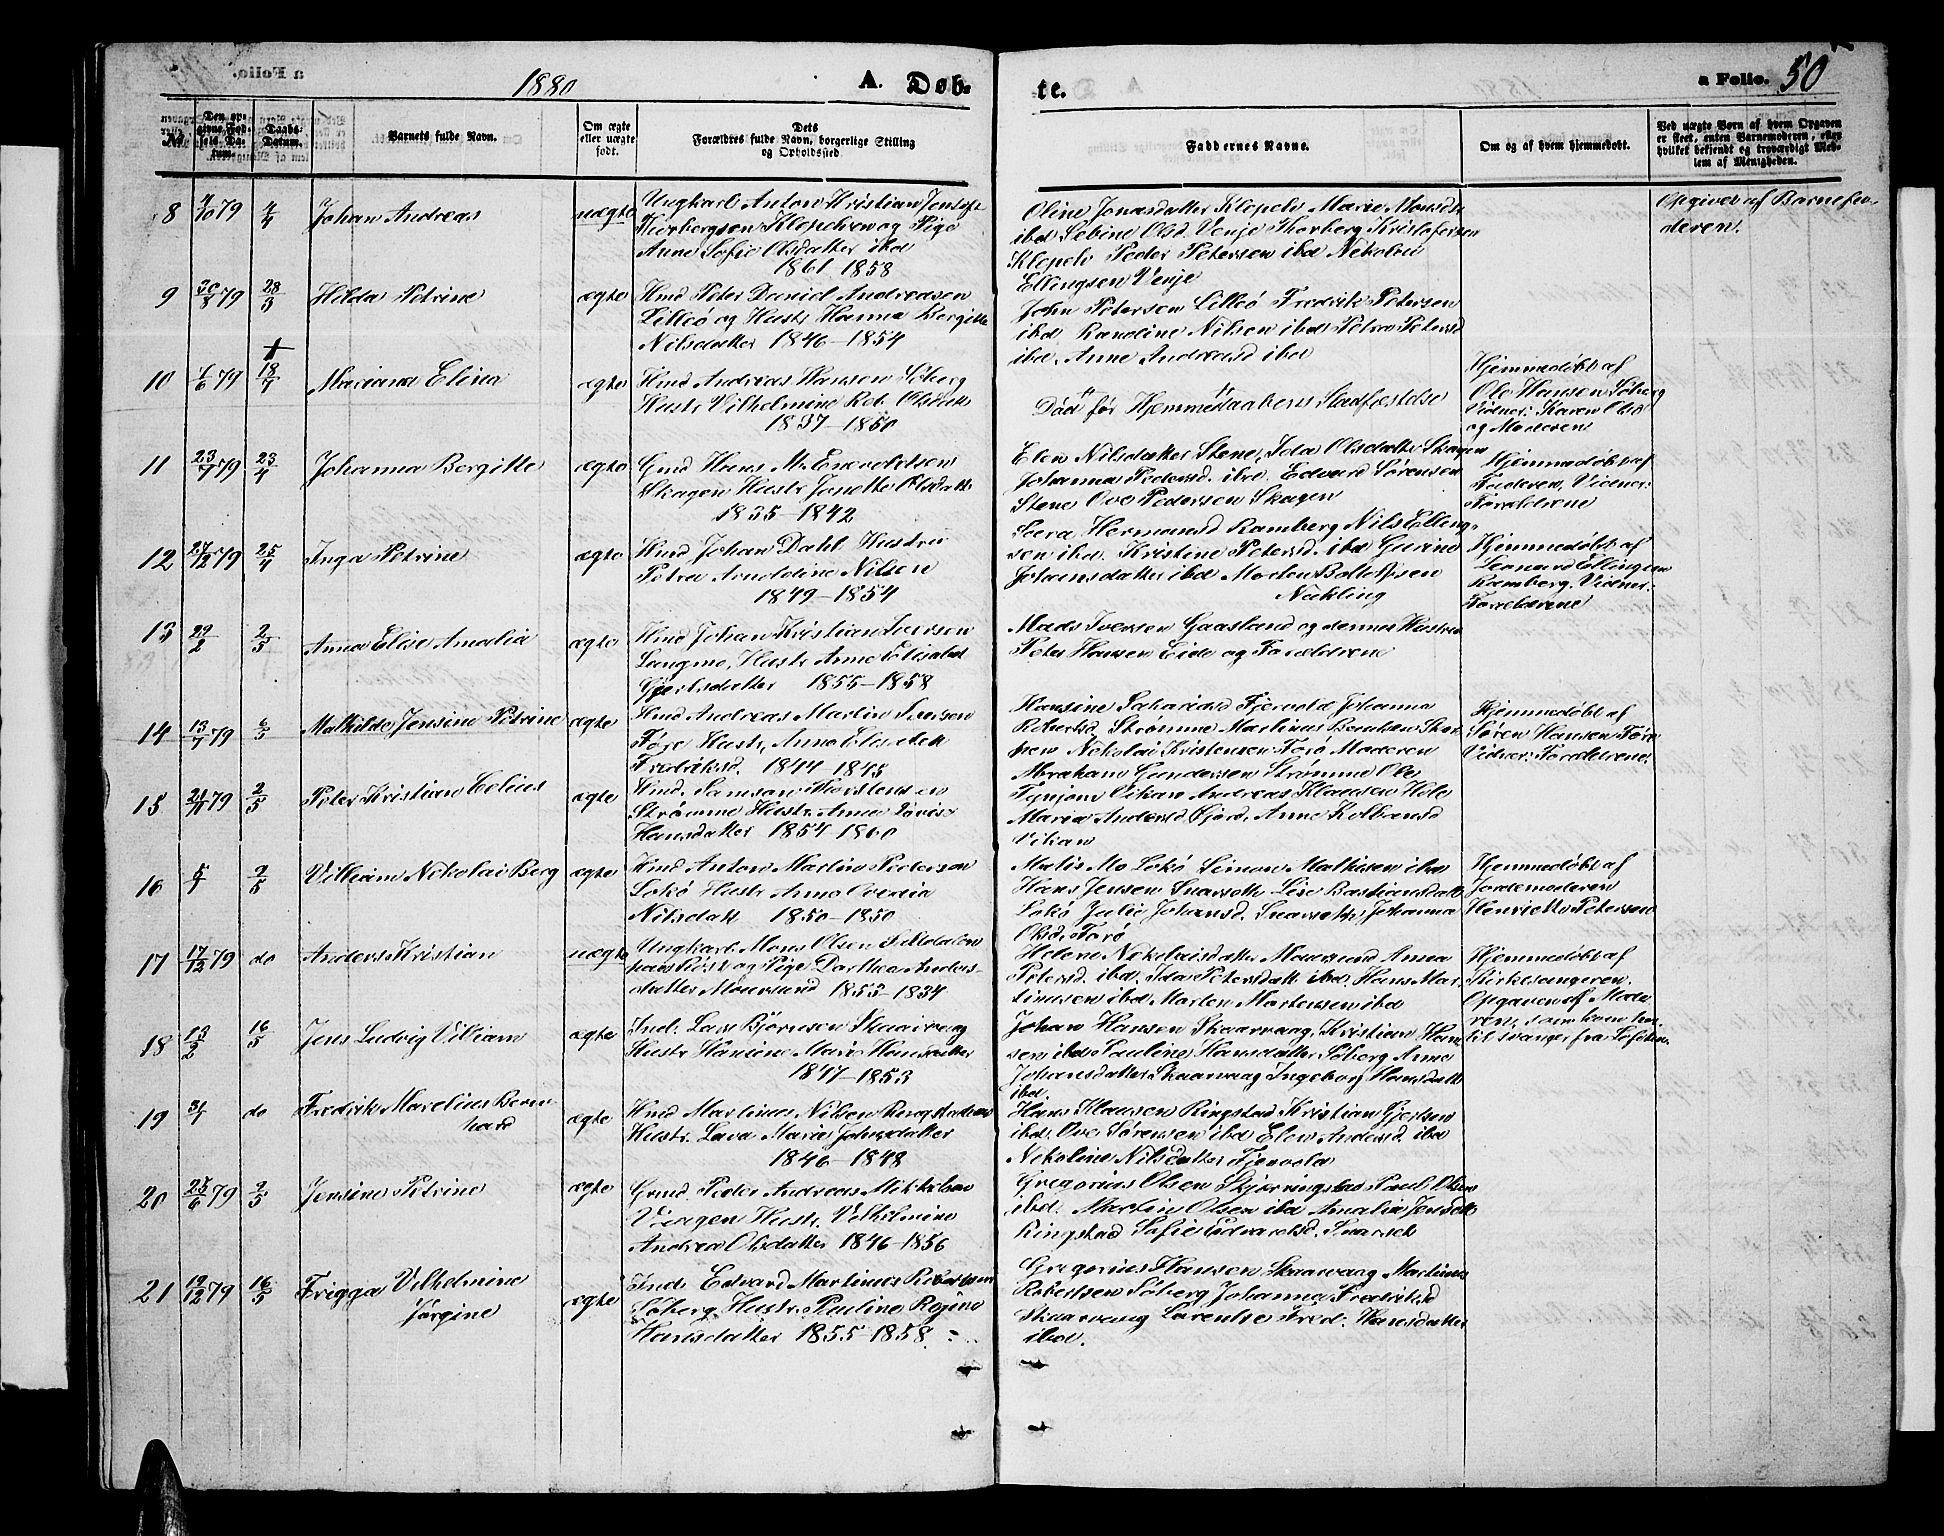 1880 A. Døb-
te. a Folio. 50
№
Den opgivne Fødsels Datum.
Daabs-Datum.
Barnets fulde Navn.
Om ægte eller uægte født.
Dets Forældres fulde Navn, borgerlige Stilling og Opholdssted.
Faddernes Navne.
Om og af hvem hjemmedøbt.
Ved uægte Børn af hvem Opgaven er skeet, enten Barnemoderen, eller hvilket bekjendt og troværdigt Medlem af Menigheden.
8 4/10 79 4/4 Johan Andreas uægte
Ungkarl Anton Kristian
Klopelven og Pige
Anne Sofie Olsdatter ibd
1861 1858
Oline Jonasdatter Klopelv Marie
ibd Sebine Olsd. Venje Thorberg Kristofersen
Klopelv Peder Petersen ibd Nikolai
Ellingsen Venje
Opgivet af Barnefa-
deren.
9 30/8 79 28/3 Hilda Petrine ægte
Hmd Peter Daniel Andreasen
Lilleø og Hustr Hanna Bergitte
Nilsdatter 1846-1854
John Petersen Lilleø Fredrik Petersen
ibd Randine Nilsen ibd Petra Petersd
ibd. Anne Andreasd ibd
10 1/6 79 18/7 Mariana Elina ægte
Hmd Andreas Hansen Søberg
Hustr Vilhelmine Reb. Olsdatt
1837-1850
Død før Hjemmedaabens Stadfæstelse
Hjemmedøbt af
Ole Hansen Søberg
Vidner: Karen Olsd
og Moderen
11 23/7 79 23/4 Johanna Bergitte ægte
Gmd Hans M. Enevoldsen
Skagen Hustr Jonette Olsdatt
1835-1842
Elen Nilsdatter Stene, Ida Olsdatter Skagen
Johanna Pedersd. ibd. Edvard Sørensen
Stene Ove Pedersen Skagen
Hjemmedøbt af
Faderen, Vidner:
Forældrene
12 27/12 79 25/4 Inga Petrine ægte
Hmd Johan Dahl Hustru
Petra Arnoldine Nilsen
1849-1854
Sara Hermansd Ramberg Nils Elling-
sen ibd. Kristine Petersd. ibd Gurine
Johansdatter ibd Morten
Nykling
Hjemmedøbt af
Leonard Ellingsen
Ramberg. Vidner:
Forældrene
13 29/2 2/5 Anna Elise Amalia ægte
Hmd Johan Kristian Iversen
Langmo, Hustr Anne Elisabet
1855-1858
Mads Iversen Gaasland og dennes Hustru
Peter Hansen Eide og Forældrene
14 13/7 79 6/5 Mathilde Jensine Petrine ægte
Hmd Andreas Martin Iversen
Hustr. Anne Elisabeth
Fredriksd. 1844-1845
Hansine Sakariasd Fjærvold Johanna
Robertsd Strømme Martinus
Nikolai Kristensen Førø Moderen
Hjemmedøbt af
Søren Hansen Førø
Vidner: Forældrene.
15 21/11 79 2/5 Peter Kristian Celius ægte
Hmd. Samson Thorstensen
Strømme Hustr. Anna Lovise
Hansdatter 1854-1860
Abraham Gundersen Strømme Ole
Vikan Andreas Klausen Hole
Maria Andersd Fjord. Anne Kolbensd
Vikan
16 5/1 2/5 Vilhelm Nikolai Berg ægte
Hmd Anton Martin Pedersen
Lokø Hustr Anne
Nilsdatt 1850-1850
Lokø Simon Mathisen ibd
Hans Jensen Lise Bastiansdatt
Lokø Julie Johansd. Johanna
Olsd. Førø
Hjemmedøbt af
Jordemoderen
Henriette Petersen
17 17/12 79 do Anders Kristian uægte
Ungkarl Mons Olsen
og Pige Dorthea Anders-
datter Maursund 1853-1834
Helene Nikolaisdatter Maursund Anna
Petersd. ibd. Ida Petersdatt ibd. Hans Mar-
tinusen ibd Morten Mortensen ibd
Hjemmedøbt af
Kirkesangeren.
Opgaven af Mode
ren, som kom her-
til svanger fra Lofoten.
18 13/2 16/5 Jens Ludvig Villiam ægte
Ind. Lars Bjørnsen Skaarvaag
Hustr Hansine Marie Hansdatter
1847-1853
Johan Hansen Skaarvaag, Kristian Han
sen ibd Pauline Hansdatter Søberg Anne
Johansdatter Skaarvaag Ingeborg Hansdatt
ibd.
19 31/1 do Fredrik Marelius Bern
hard ægte
Hmd Martinus Nilsen Ringstad
Hustr. Lava Marie Johnsdatter
1846-1848
Hans Klausen Ringstad Kristian Gjertsen
ibd. Ove Sørensen ibd Elen Andersd. ibd
Nikoline Nilsdatter Fjærvold
20 25/6 79 2/5 Jensine Petrine ægte
Gmd Peder Andreas Mikkelsen
Viagen Hustr. Vilhelmine
Andrea Olsdatter 1846-1856
Gregorius Olsen Skjærvingstad Paul Olsen
ibd. Martin Olsen ibd Amalia Jensdatt
Ringstad Sofie Edvardsd.
21 19/12 79 16/5 Frigga Vilhelmine
Jørgine ægte
Ind Edvard Martinus Robertsen
Søberg Hustr. Pauline Regine
Hansdatter 1855-1858.
Gregorius Hansen Skaarvaag Martinus
Robertsen Søberg Johanna Fredriksd
Skaarvaag Lorentse Fred: Hansdatter
ibd.